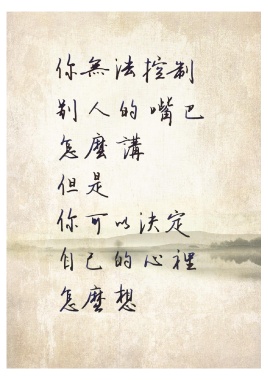 你無法控制
別人的嘴巴
怎麼講
但是
你可以決定
自己的心裡
怎麼想